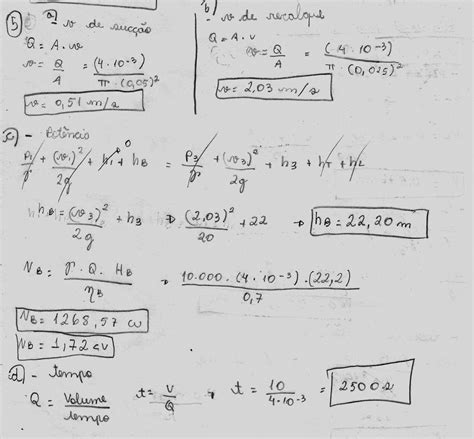 5) a) v de sucção
Q = A . v
v = Q/A = (4 . 10⁻³) / π . (0,05)²
v = 0,51 m/s
b) v de recalque
Q = A . v
v = Q/A = (4 . 10⁻³) / π . (0,025)²
v = 2,03 m/s
c) - Potência
P₁/γ + (v₁)²/2g + h₁ + hB = P₃/γ + (v₃)²/2g + h₃ + hT + hL
0
hB = (v₃)²/2g + h₃ ⇒ (2,03)²/20 + 22 ⇒ hB = 22,20 m
NB = γ . Q . HB / ηB ⇒ 10.000 . (4 . 10⁻³) . (22,2) / 0,7
NB = 1268,57 cv
NB = 1,72 cv
d) - tempo
Q = Volume/tempo t = V/Q , t = 10 / 4 . 10⁻³ = 2500 s